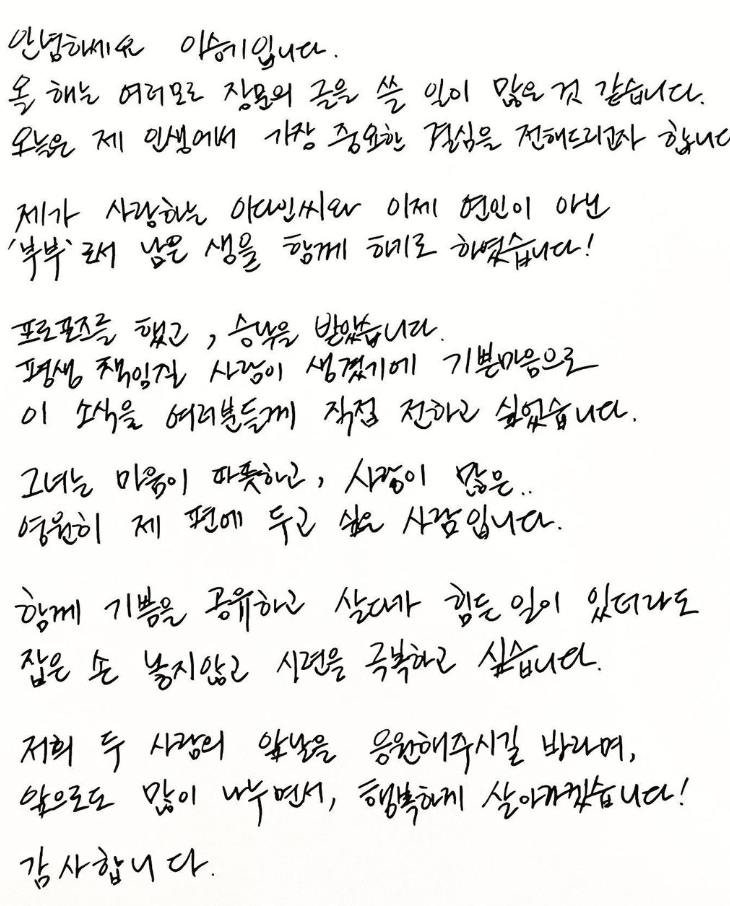 안녕하세요 이승기입니다.
올 해는 여러모로 장문의 글을 쓸 일이 많은 것 같습니다.
오늘은 제 인생에서 가장 중요한 결심을 전해드리고자 합니다
제가 사랑하는 이다인씨와 이제 연인이 아닌
'부부'로서 남은 생을 함께 하기로 하였습니다!
프로포즈를 했고, 승낙을 받았습니다.
평생 책임질 사람이 생겼기에 기쁜마음으로
이 소식을 여러분들께 직접 전하고 싶었습니다.
그녀는 마음이 따뜻하고, 사랑이 많은..
영원히 제 편에 두고 싶은 사람입니다.
함께 기쁨을 공유하고 살다가 힘든 일이 있더라도
잡은 손 놓지않고 시련을 극복하고 싶습니다.
저희 두 사람의 앞날을 응원해주시길 바라며,
앞으로도 많이 나누면서, 행복하게 살아가겠습니다!
감사합니다.